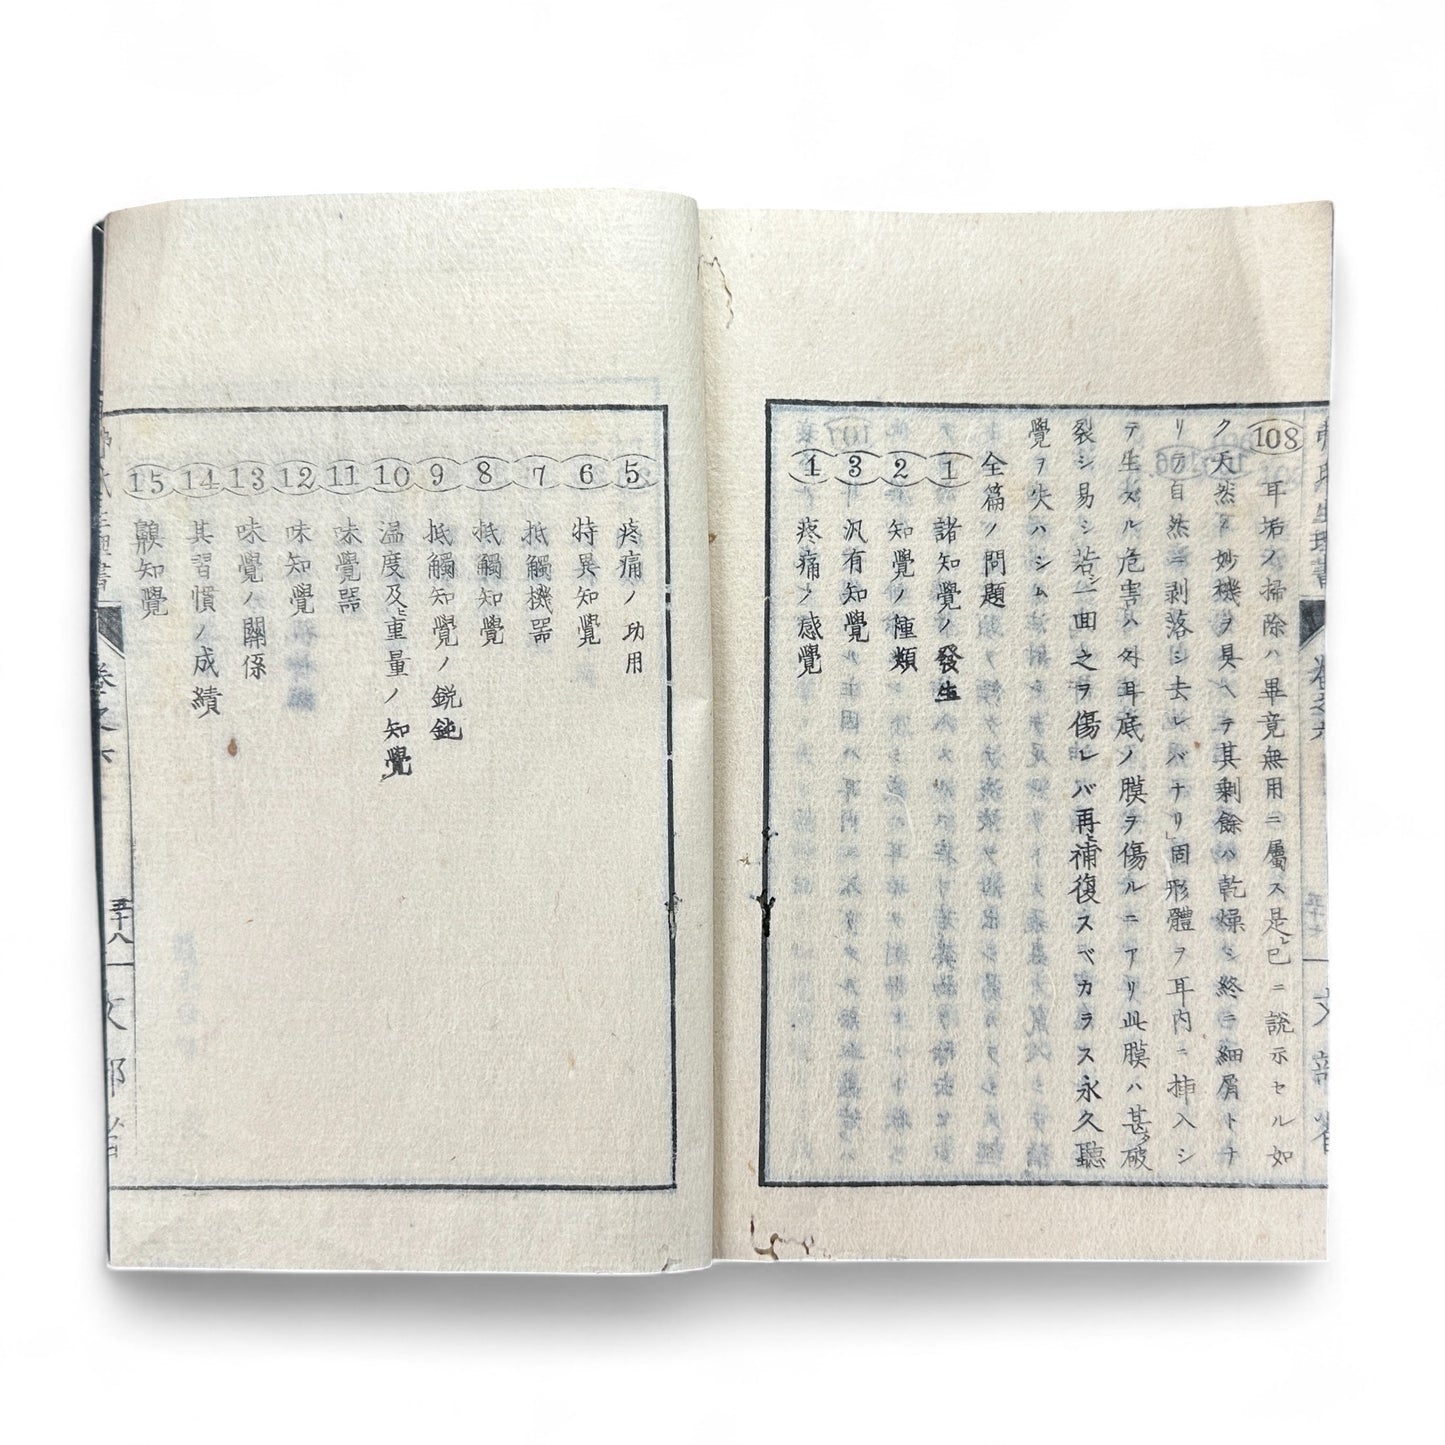 108 耳垢ノ掃除ハ畢竟無用ニ屬ス是已ニ說示セル如
ク天然ノ妙機ヲ具ヘテ其剩餘ハ乾燥シ終ニ細屑トナ
リテ自然ニ剥落シ去レバナリ」固形體ヲ耳内ニ挿入シ
テ生スル危害ハ外耳底ノ膜ヲ傷ルニアリ此膜ハ甚破
裂シ易シ若シ一面之ヲ傷レバ再ヒ補復スベカラス永久聽
覺ヲ失ハシム
全篇ノ問題
1 諸知覺ノ發生
2 知覺ノ種類
3 汎有知覺
4 疼痛ノ感覺
5 疼痛ノ功用
6 特異知覺
7 抵觸機器
8 抵觸知覺
9 抵觸知覺ノ銳鈍
10 温度及ヒ重量ノ知覺
11 味覺器
12 味知覺
13 味覺ノ關係
14 其習慣ノ成績
15 齅知覺
卷之六
五十八
文部省